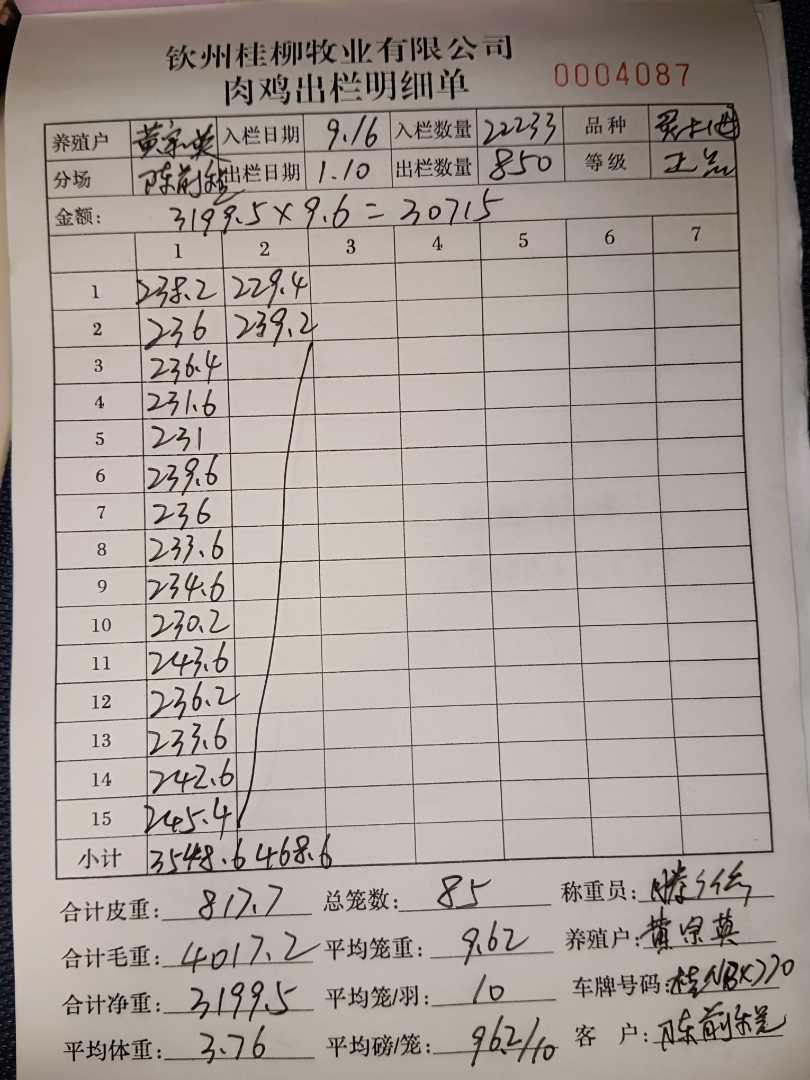 钦州桂柳牧业有限公司
肉鸡出栏明细单 0004087
养殖户 黄宗英 入栏日期 9.16 入栏数量 22233 品种
分场 陈前 出栏日期 1.10 出栏数量 850 等级 正品
金额: 3199.5×9.6=30715
1 2 3 4 5 6 7
1 238.2 229.4
2 236 239.2
3 236.4
4 231.6
5 231
6 239.6
7 236
8 233.6
9 234.6
10 230.2
11 243.6
12 236.2
13 233.6
14 242.6
15 245.4
小计 3548.6 468.6
合计皮重: 817.7 总笼数: 85 称重员:
合计毛重: 4017.2 平均笼重: 9.62 养殖户: 黄宗英
合计净重: 3199.5 平均笼/羽: 10 车牌号码: 桂NBX770
平均体重: 3.76 平均磅/笼: 96.2/10 客 户: 陈前